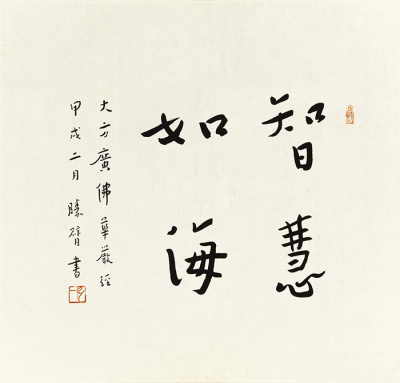 智慧
如海
大方廣佛華嚴經
甲戌二月 書